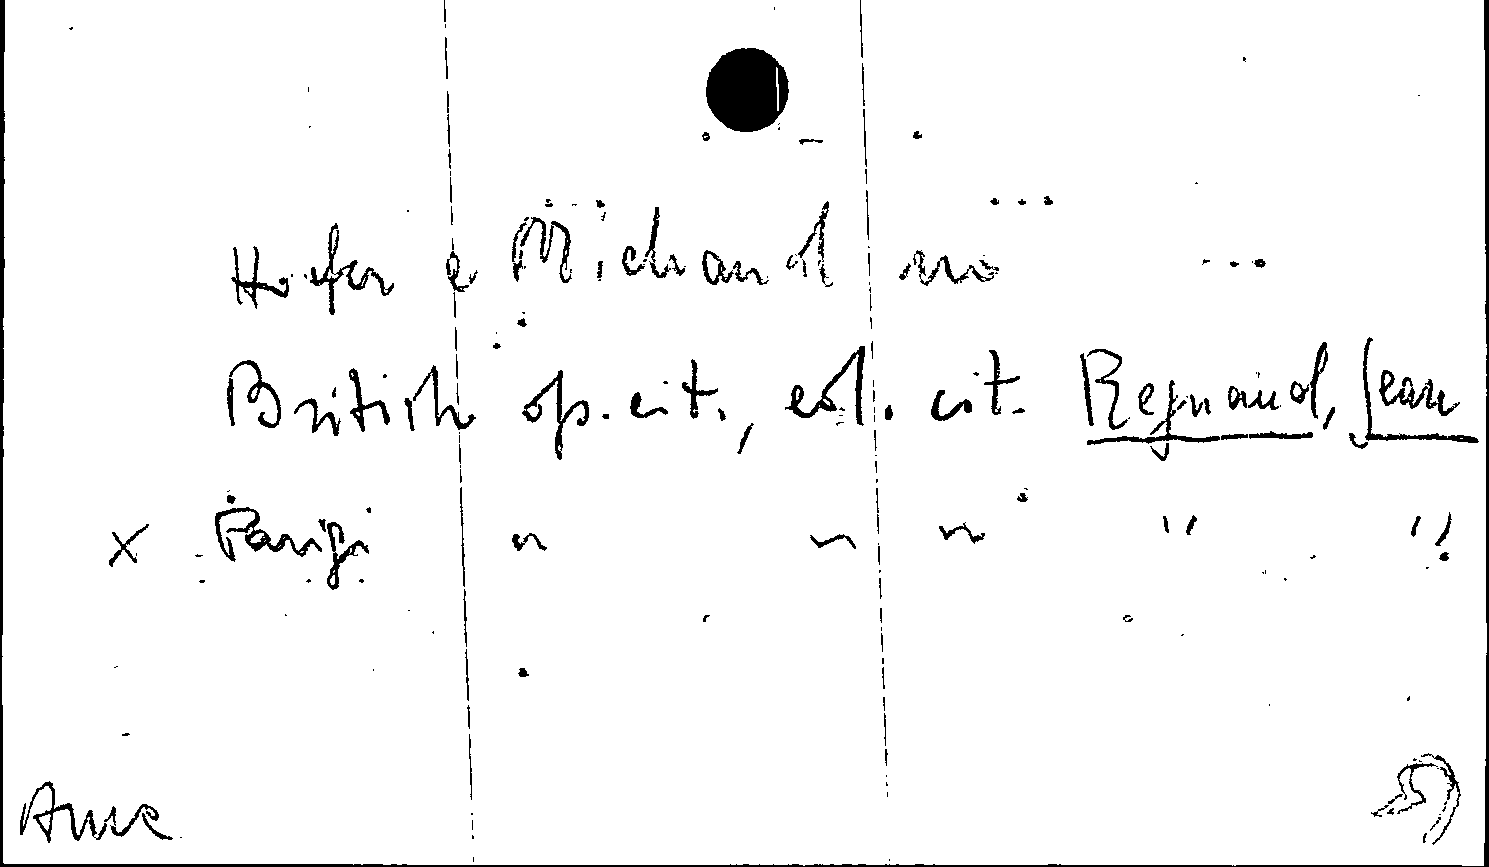 Hoefer e Michaud no
British op. cit., ed. cit. Regnaud, Jean
x Parigi " " " " "